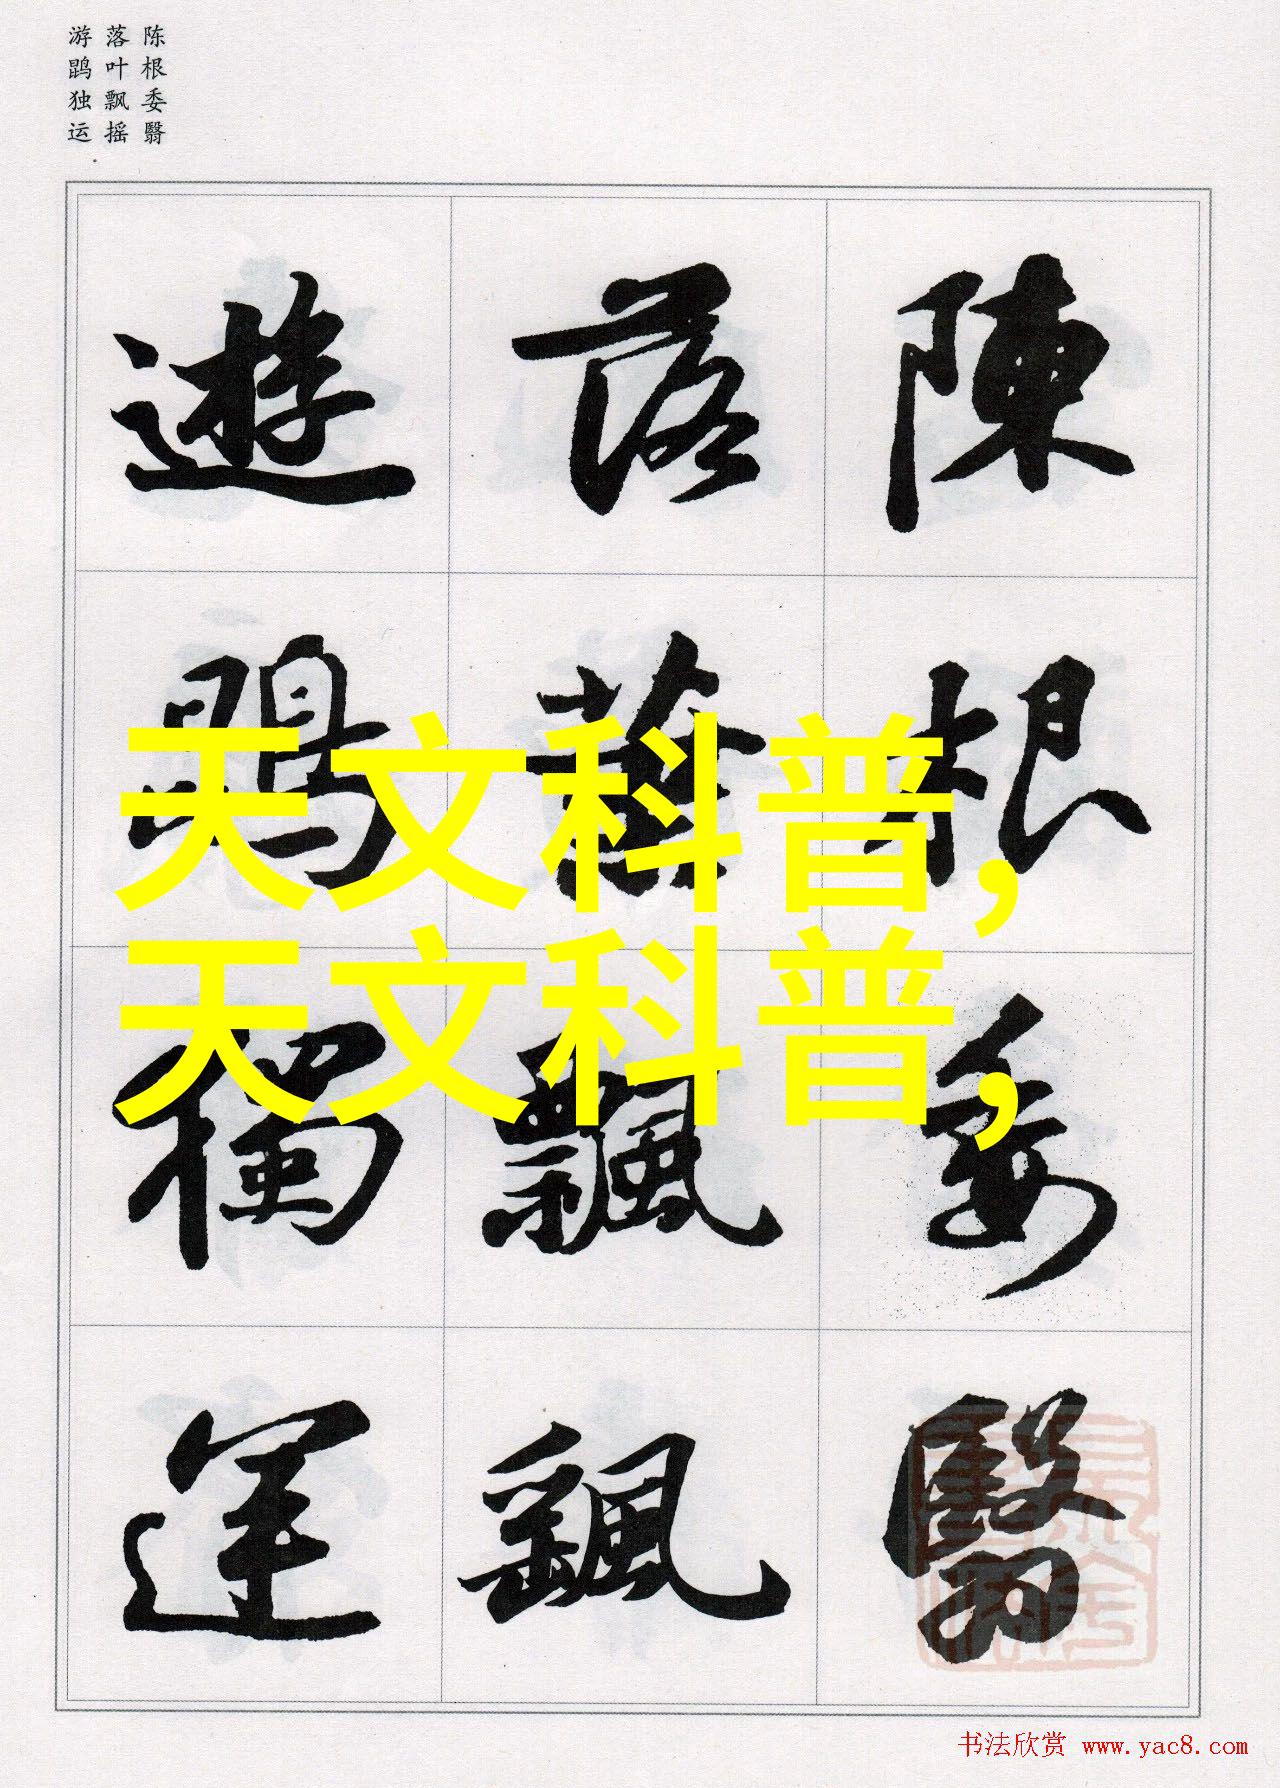 陈根委翳
落叶飘摇
游鹍独运
陳根委翳
落葉飄颻
遊鵾獨運
天文科普,
天文科普,
书法欣赏 www.yac8.com